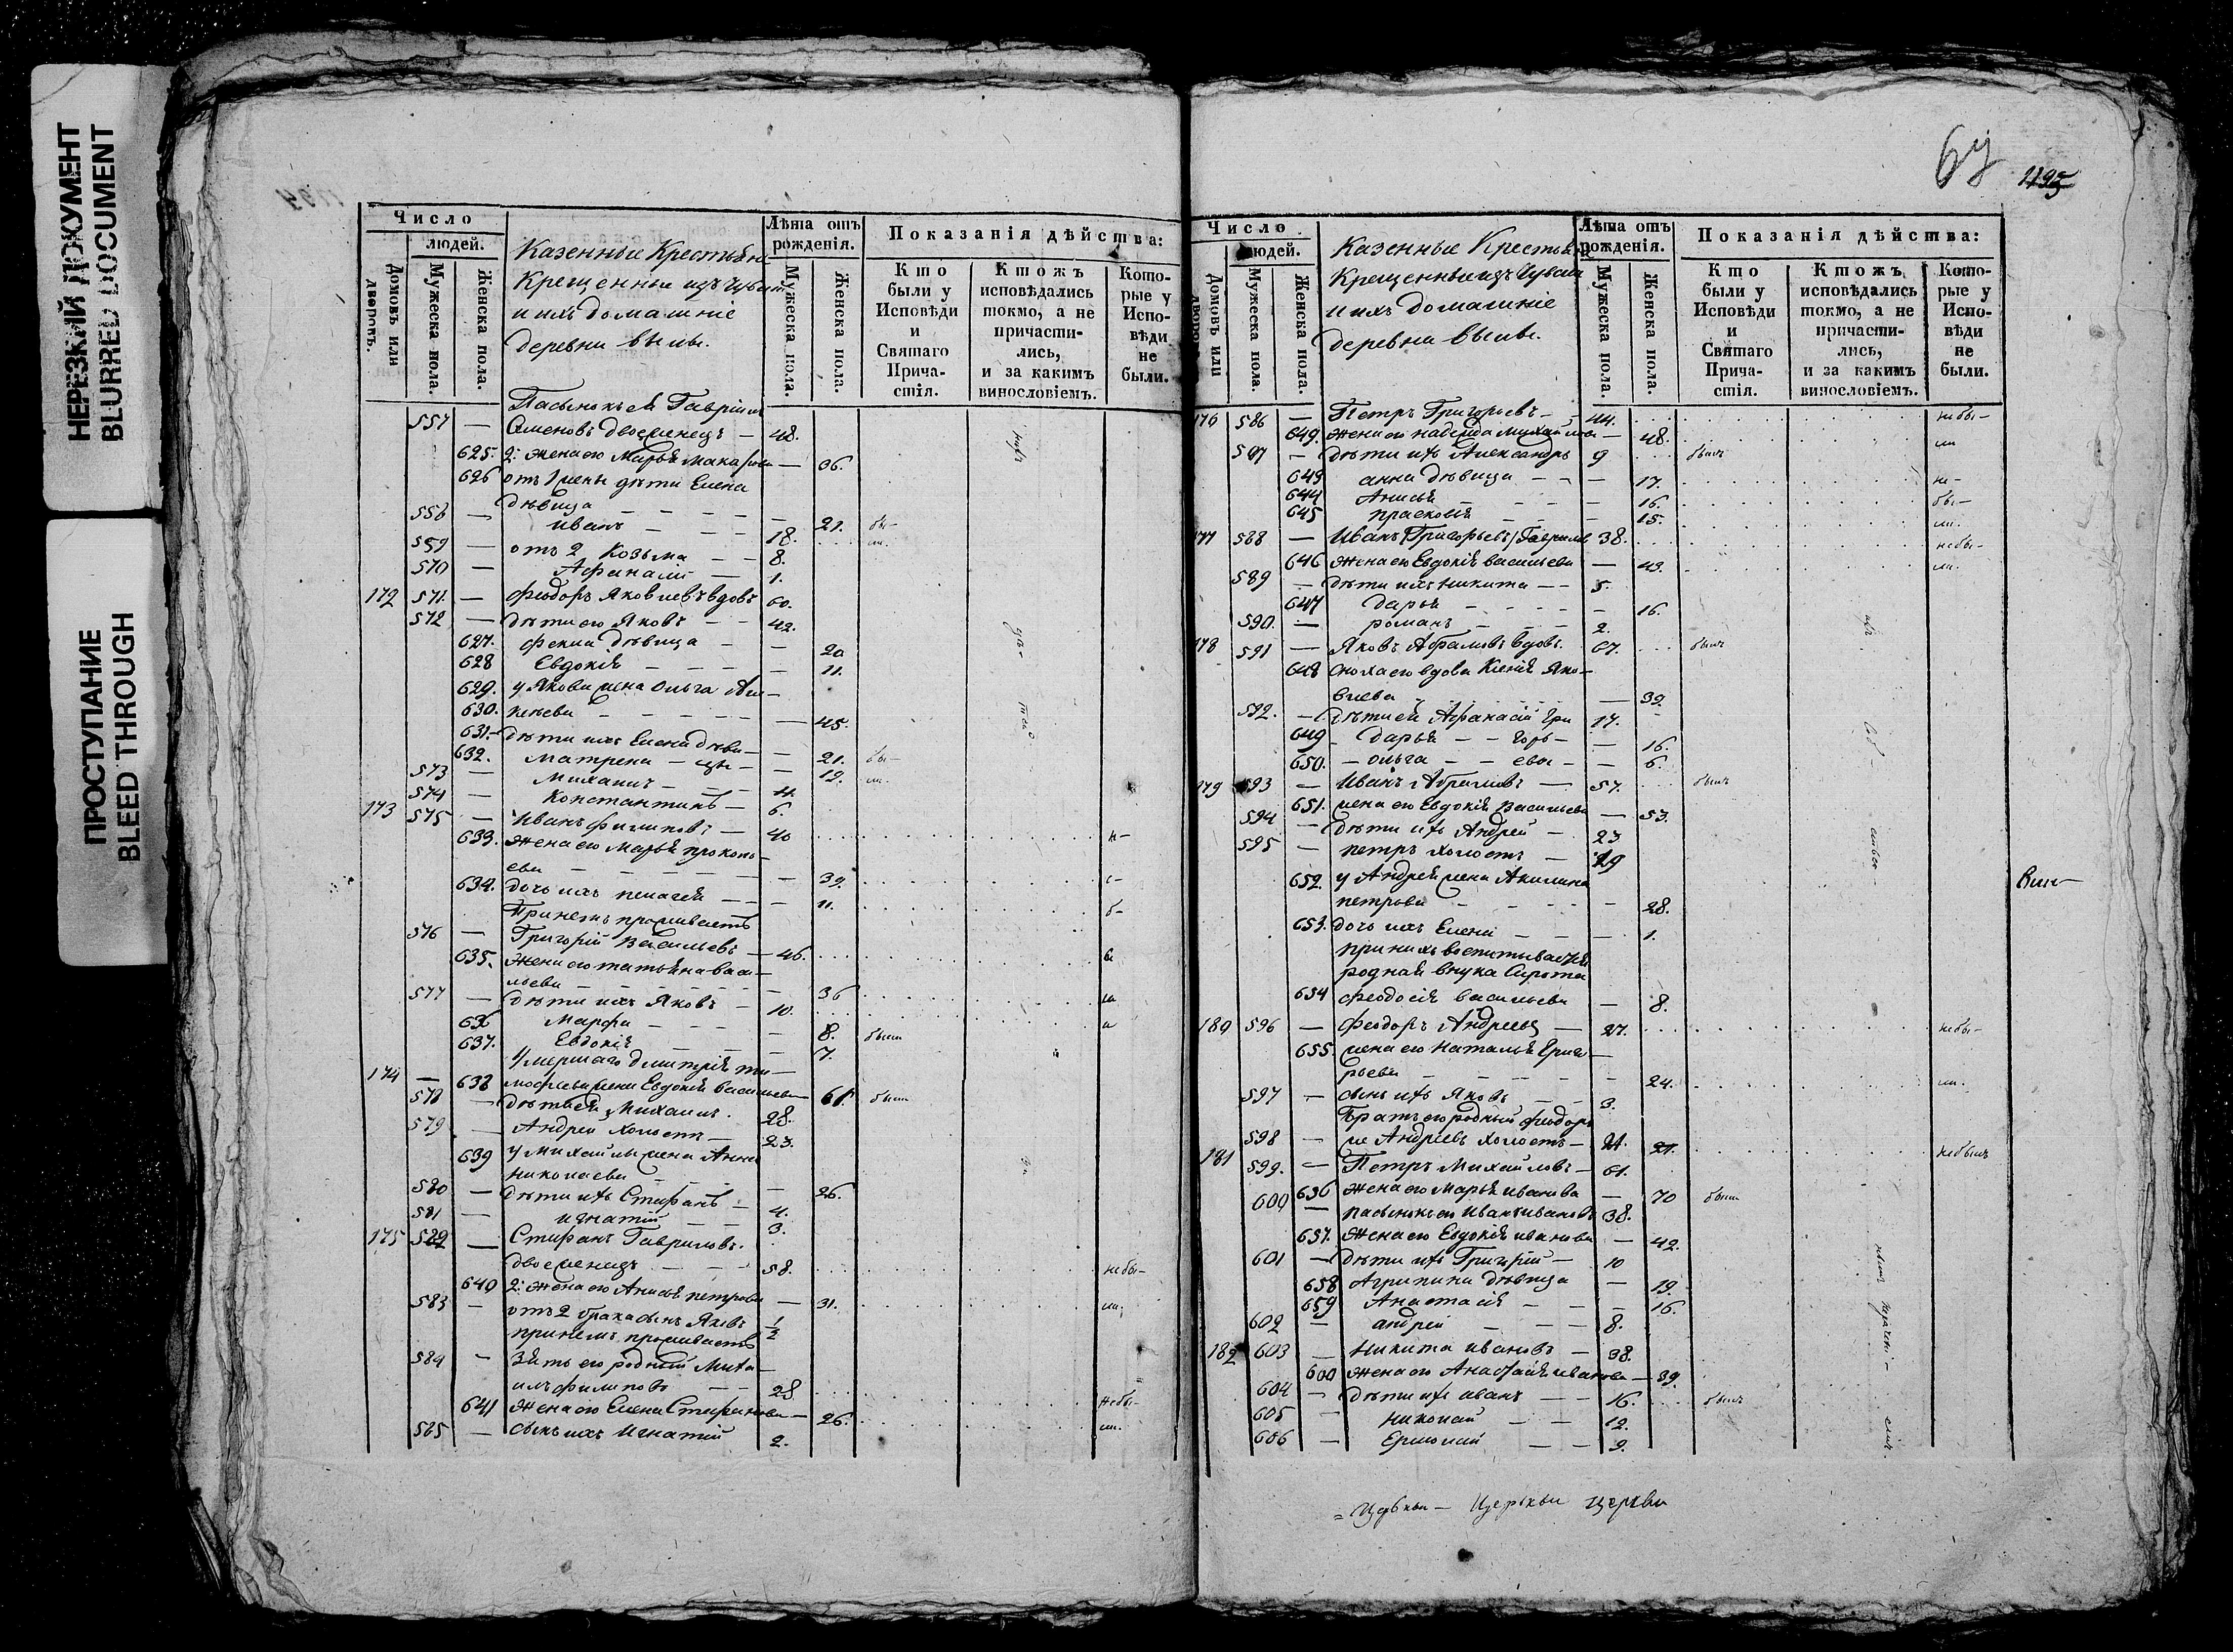 НЕРЕЗКИЙ ДОКУМЕНТ
BLURRED DOCUMENT
ПРОСТУПАНИЕ
BLEED THROUGH
Число
людей.
Домовъ или дворовъ.
Мужеска пола.
Женска пола.
Казенные Крестьяне
Крещенные изъ Чуваш
и ихъ домашніе
деревни
Лѣта отъ рожденія.
Мужеска пола.
Женска пола.
Показанія дѣйства:
Кто были у Исповѣди и Святаго Прича-стія.
Ктожъ исповѣдались токмо, а не причасти-лись, и за какимъ винословіемъ.
Кото-рые у Испо-вѣди не были.
Пасынокъ Гавріилъ
557 — Семеновъ двоеженецъ — 48.
625. 2. жена его Марья Макарова — 36.
626 отъ 1 жены дѣти Елена
дѣвица — 21. бы-
556 — Иванъ — 18. ли.
559 — отъ 2 Козьма — 8.
570 — Афанасій — 1.
172 571. — Феодоръ Яковлевъ вдовъ 60.
572 — дѣти его Яковъ — 42.
627. Фекла дѣвица — 20
628 Евдокія — 11.
629. у Якова жена Ольга
630. — 45.
631. дѣти ихъ Елена дѣви-
632. Матрена — цы — 21. бы-
573 — Михаилъ — 12. ли.
574 — Константинъ — 4.
173 575 — Иванъ Филиповъ — 6. 40
633. жена его Марья Прокопь-
ева — 39.
634. дочь ихъ Пелагея — 11.
При немъ проживаетъ
576 — Григорій Васильевъ — 46.
635. жена его Татьяна Васи-
льева — 36
577 — дѣти ихъ Яковъ — 10.
636 Марфа — 8. были
637. Евдокія — 7.
Умершаго Димитрія Ти-
174 — 638 мофеева жена Евдокія Васильева 61. были
578 — дѣти ея Михаилъ. 28.
579 — Андрей холостъ — 23.
639 у Михаилы жена Анна
Николаева — 26.
580 — дѣти ихъ Стефанъ — 4.
581 — Игнатій — 3.
175 582 — Стефанъ Гавриловъ.
двоеженецъ — 58. не бы-
640 2. жена его Анисья Петрова — 31. ли.
583 — отъ 2 брака сынъ Яковъ 1/2
при немъ проживаетъ
584 — Зять его родной Миха-
илъ Филиповъ — 28
641 жена его Елена Стефанова — 26. не бы-
585 — сынъ ихъ Игнатій 2. ли.
67
1195
Число
людей.
Домовъ или
Мужеска пола.
Женска пола.
Казенные Крестьяне
Крещенные изъ Чуваш
и ихъ домашніе
деревни
Лѣта отъ рожденія.
Мужеска пола.
Женска пола.
Показанія дѣйства:
Кто были у Исповѣди и Святаго Прича-стія.
Ктожъ исповѣдались токмо, а не причасти-лись, и за какимъ винословіемъ.
Кото-рые у Испо-вѣди не были.
176 586 — Петръ Григорьевъ — 44. не бы-
642. жена его Надежда Михайлова — 48. ли
587 — дѣти ихъ Александръ 9 былъ
643 Анна дѣвица — 17. не-
644 Анисья — 16. бы-
645 Прасковья — 15. ли.
177 588 — Иванъ Григорьевъ 38. не бы-
646 жена его Евдокія Васильева — 43. ли.
589 — дѣти ихъ Никита — 5.
647 Дарья — 16.
590. — Романъ — 2.
178 591 — Яковъ Абрамовъ вдовъ. 67. былъ
648 сноха его вдова Ксенія Яко-
влева — 39.
592. — дѣти ея Афанасій Гри 17.
649 Дарья — горь — 16.
650. Ольга — евы — 6.
179 593 — Иванъ Абрамовъ — 57. былъ
651. жена его Евдокія Васильева — 53.
594 — дѣти ихъ Андрей — 23
595 — Петръ холостъ — 19
652. у Андрея жена Акилина
Петрова — 28.
653. дочь ихъ Елена — 1.
при нихъ воспитывается
родная внука сирота
654 Феодосія Васильева — 8.
180 596 — Феодоръ Андреевъ — 27. не бы-
655. жена его Наталья Григо-
рьева — 24. ли.
597 — сынъ ихъ Яковъ — 3.
Братъ его родный Феодоръ
598 — же Андреевъ холостъ — 21. не былъ
181 599. — Петръ Михайловъ — 61.
656 жена его Марья Иванова — 70 были
600 — пасынокъ его Иванъ Ивановъ 38.
657. жена его Евдокія Иванова — 42.
601 — дѣти ихъ Григорій — 10
658 Агрипина дѣвица — 19.
659 Анастасія — 16.
602 — Андрей — 8.
182 603 — Никита Ивановъ — 38.
660 жена его Анастасія Иванова — 39.
604 — дѣти ихъ Иванъ — 16. былъ
605 — Николай — 12.
606 — Ермолай — 9.
Церкви